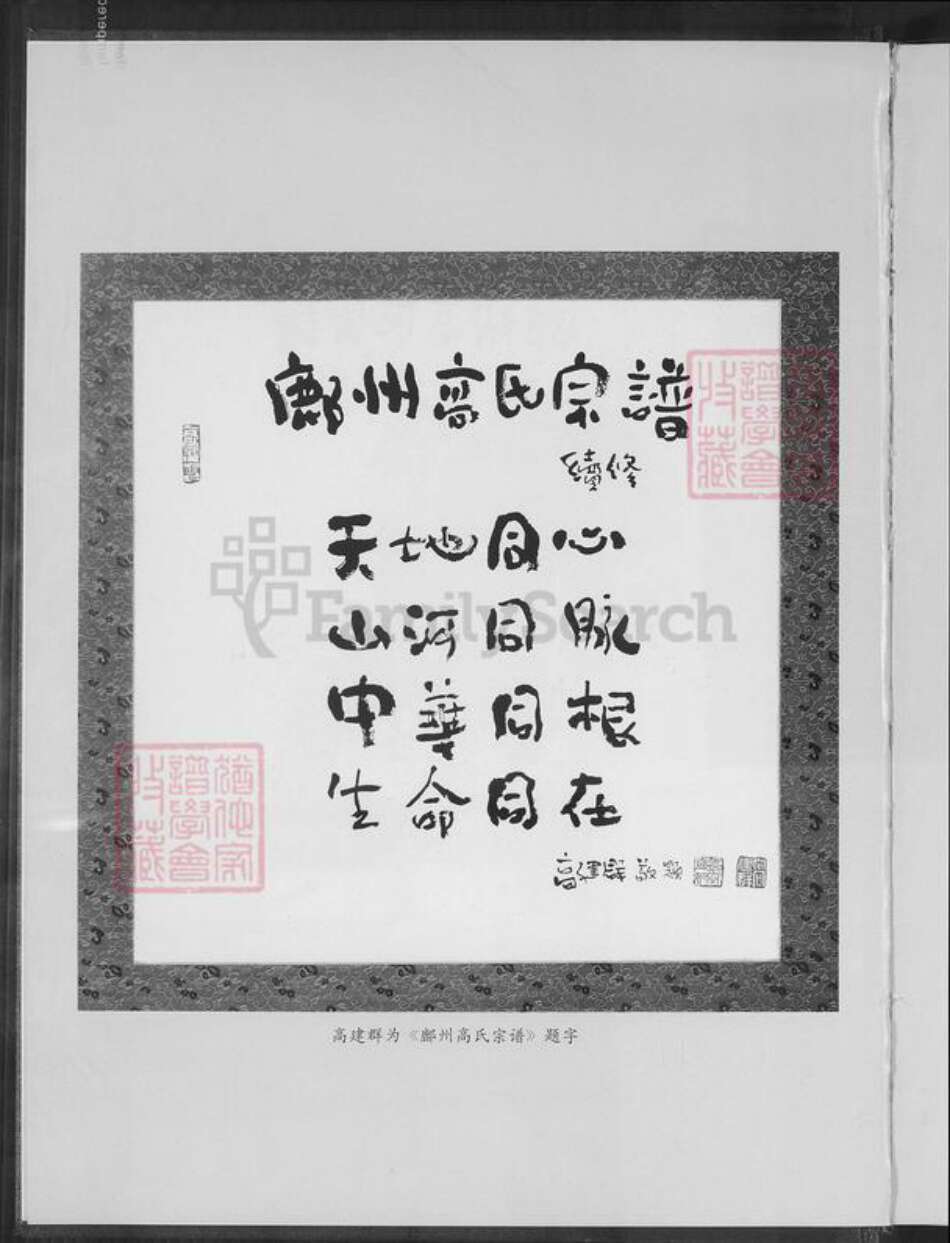 鄜州高氏宗譜
續修
天地同心
山河同脈
中華同根
生命同在
高建群敬題
高建群为《鄜州高氏宗谱》题字
FamilySearch
譜學會
收藏
譜學會
收藏